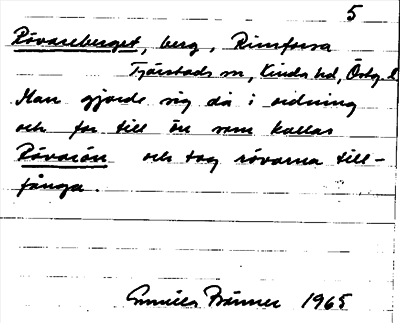 5
Rövareberget, berg, Rimforsa
Tjärstads sn, Kinda hd, Östg. l
Man gjorde sig då i ordning
och for till ön som kallas
Rövarön och tog rövarna till-
fånga.
Gunilla Bränner 1965